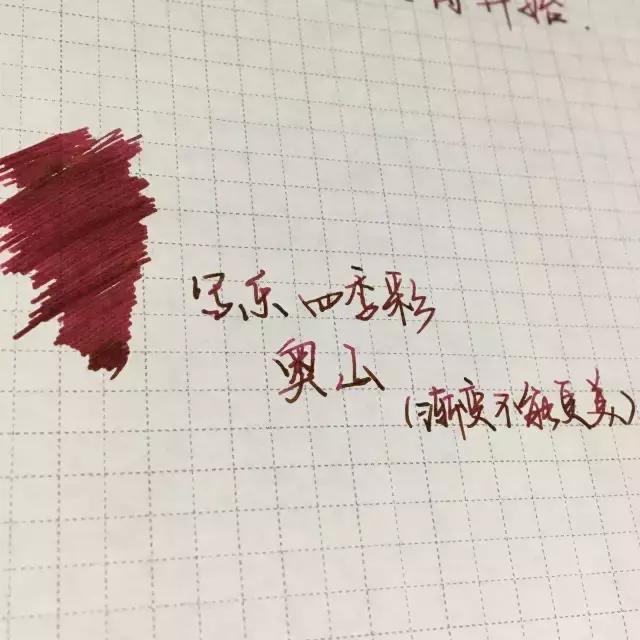 写乐四季彩
奥山
(渐变不能更美)